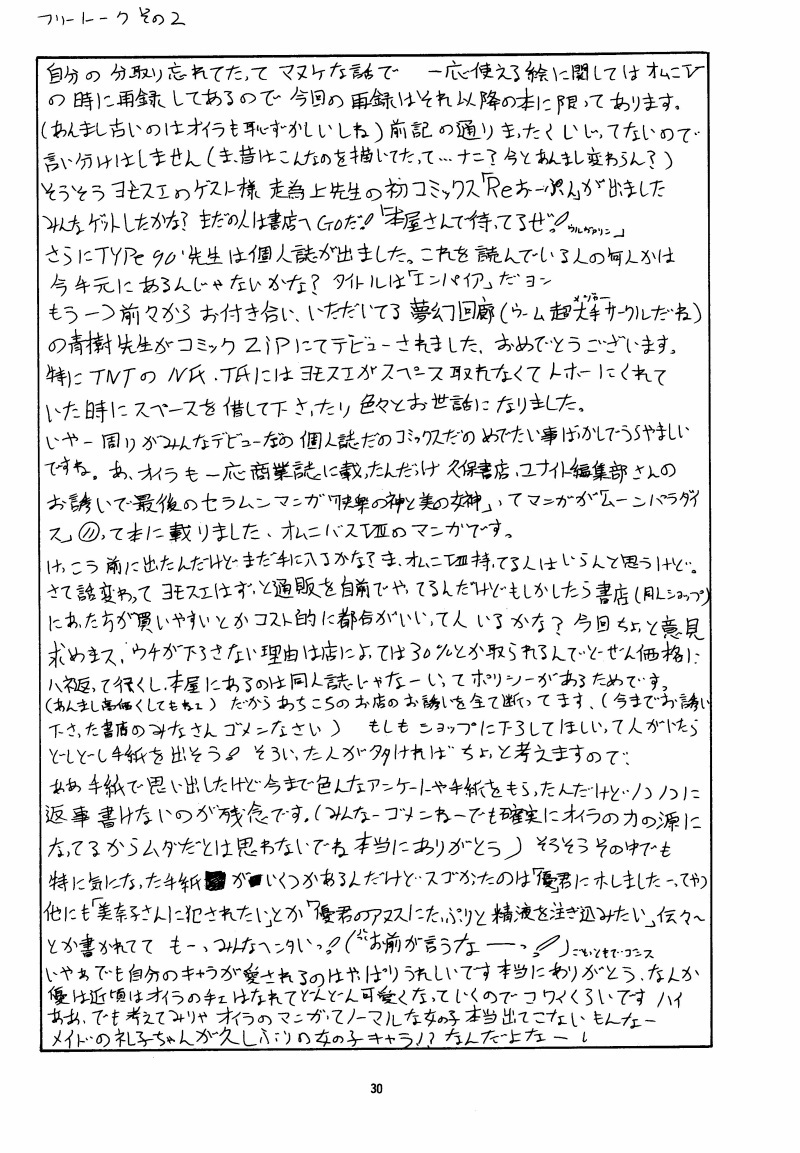 フリートーク その2
自分の分取り忘れてたってマヌケな話で 一応使える絵に関してはオムニⅣ
の時に再録してあるので今回の再録はそれ以降の本に限ってあります。
(あんまし古いのはオイラも恥ずかしいしね)前記の通りまったくいじってないので
言い分けはしません(ま、昔はこんなのを描いてたって…ナニ?今とあんまし変わらん?)
そうそうヨモスエのゲスト様 走為上先生の初コミックス「Reおーぷん」が出ました
みんなゲットしたかな?まだの人は書店へGOだ!「本屋さんで待ってるぜっ!ウルヴァリン」
さらにTYPe90'先生は個人誌が出ました。これを読んでいる人の何人かは
今手元にあるんじゃないかな?タイトルは「エンパイア」だヨン
もう一つ前々からお付き合い、いただいてる夢幻回廊(ウーム超大手サークルだね)
メジャー
の青樹先生がコミックZiPにてデビューされました、おめでとうございます。
特にTNTのNFA.TFAにはヨモスエがスペース取れなくてトホーにくれて
いた時にスペースを借して下さったり色々とお世話になりました。
いやー周りがみんなデビューだの個人誌だのコミックスだのめでたい事ばかしでうらやましい
ですね。あ、オイラも一応商業誌に載ったんだっけ久保書店、ユナイト編集部さんの
お誘いで最後のセラムンマンガ「快楽の神と美の女神」ってマンガが「ムーンパラダイ
ス」⑪って本に載りました、オムニバスⅧのマンガです。
けっこう前に出たんだけどまだ手に入るかな?ま、オムニⅧ持ってる人はいらんと思うけど。
さて話変わってヨモスエはずっと通販を自前でやってるんだけどもしかしたら書店(同人ショップ)
にあった方が買いやすいとかコスト的に都合がいいって人いるかな?今回ちょっと意見
求めまス、ウチが下ろさない理由は店によっては30%とか取られるんでとーぜん価格に
ハネ返って行くし、本屋にあるのは同人誌じゃなーいってポリシーがあるためです。
(あんまし高価くしてもねェ)だからあちこちのお店のお誘いを全て断ってます、(今までお誘い
下さった書店のみなさんゴメンなさい) もしもショップに下ろしてほしいって人がいたら
どしどし手紙を出そう!そういった人が多ければちょっと考えますので、
ああ手紙で思い出したけど今まで色んなアンケートや手紙をもらったんだけど
返事書けないのが残念です。(みんなーゴメンねーでも確実にオイラの力の源に
なってるからムダだとは思わないでね本当にありがとう)そうそうその中でも
特に気になった手紙がいくつかあるんだけどスゴかったのは「優君にホしました」ってやつ
他にも「美奈子さんに犯されたい」とか「優君のアヌスにたっぷりと精液を注ぎ込みたい」伝々〜
とか書かれてて もーっみんなヘンタいっ!(お前が言うなーっ!)
いやぁでも自分のキャラが愛されるのはやっぱりうれしいです本当にありがとう、なんか
優は近頃はオイラのチェはなれてどんどん可愛くなっていくのでコワイくらいです ハイ
ああ、でも考えてみりゃオイラのマンガってノーマルな女の子本当出てこないもんなー
メイドの礼子ちゃんが久しぶりの女の子キャラ!?なんだよなー
30